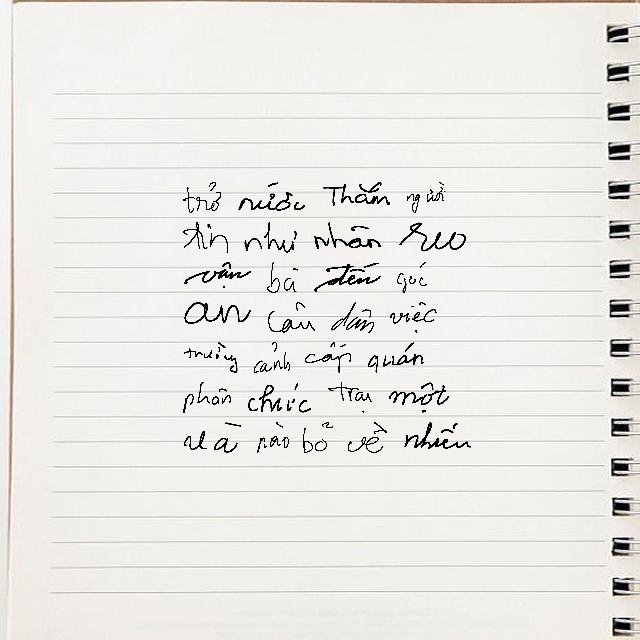 trở nước Thắm người
tin như nhân reo
vận bà đến góc
an câu dân việc
trường cảnh cấp quán
phân chức trại một
và nào bỏ về nhiều